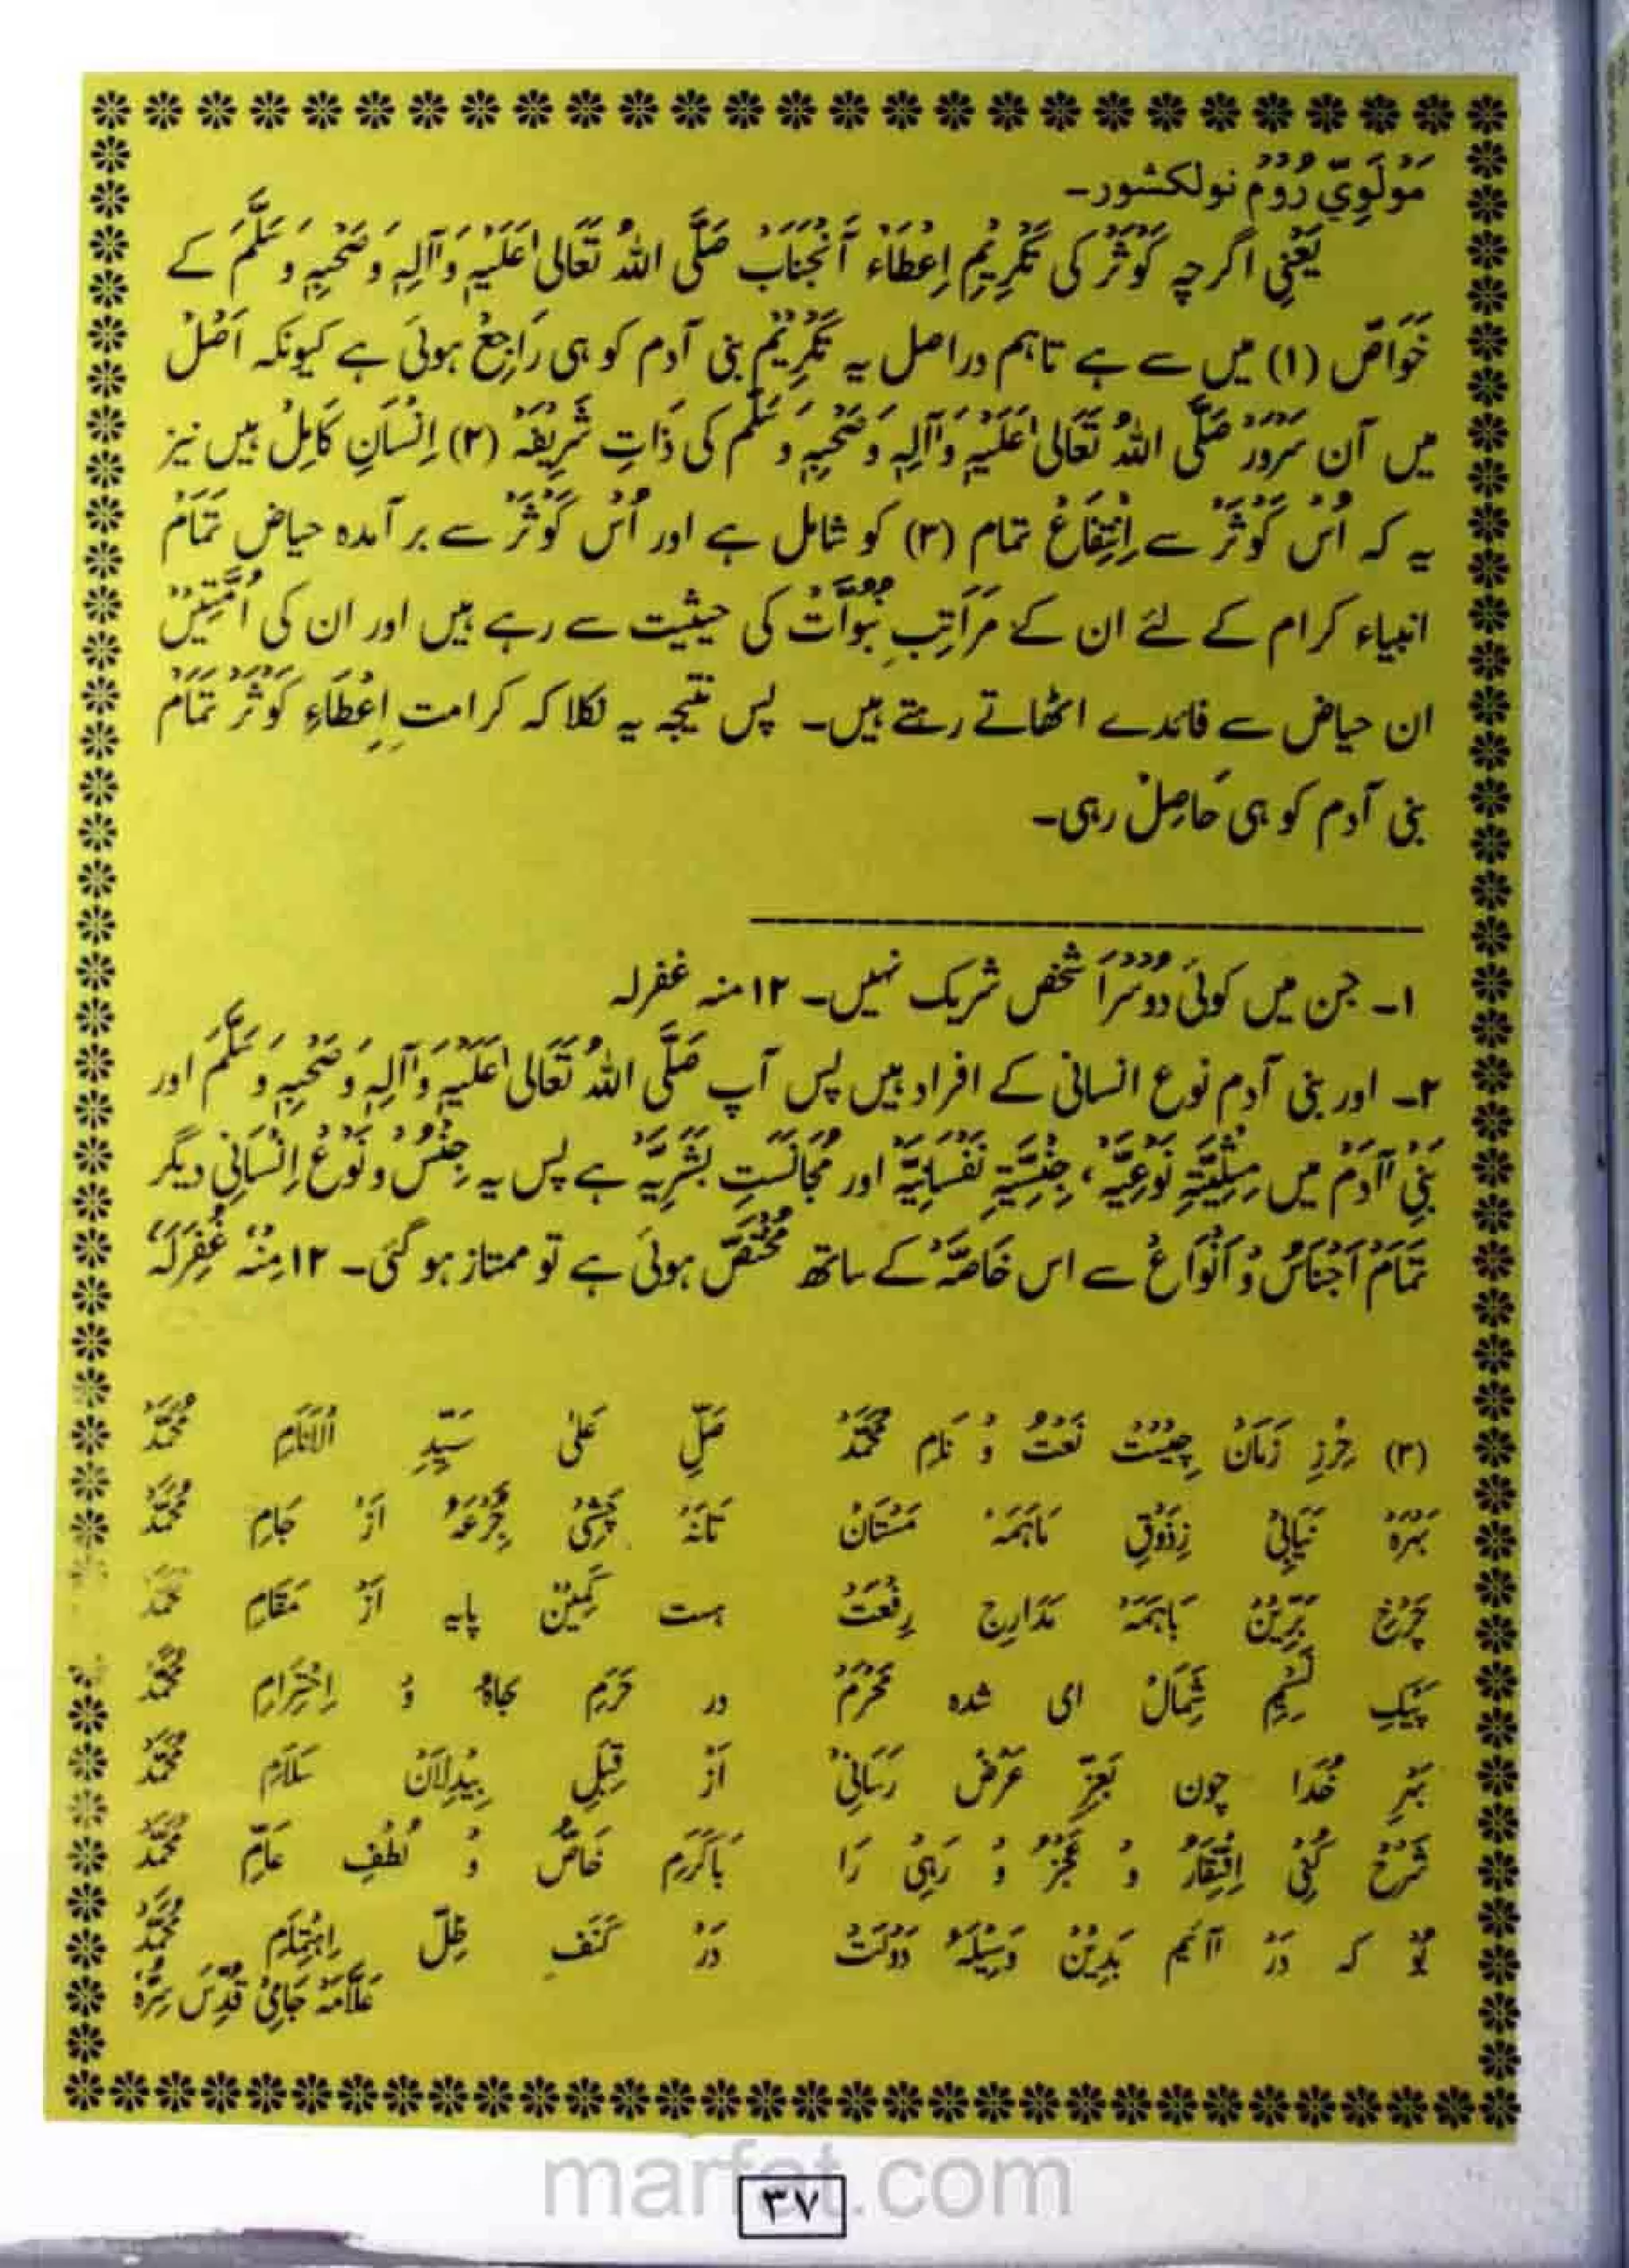 مَوْلَوِيِّ رُوْمْ نولکشور۔
یَعْنِی اگرچہ کَوْثَرْ کی تَکْرِیْمِ اِعْطَاءْ آنْجَنَابْ صَلَّی اللہُ تَعَالیٰ عَلَیْہِ وَآلِہٖ وَصَحْبِہٖ وَسَلَّمَ کے
خَوَاصّ (۱) میں سے ہے تاہم دراصل یہ تَکْرِیْمْ بنی آدم کو ہی رَاجِعْ ہوئی ہے کیونکہ اَصْلْ
میں آن سَرْوَرْ صَلَّی اللہُ تَعَالیٰ عَلَیْہِ وَآلِہٖ وَصَحْبِہٖ وَسَلَّمَ کی ذَاتِ شَرِیْفَہْ (۲) اِنْسَانِ کَامِلْ ہیں نیز
یہ کہ اُسْ کَوْثَرْ سے اِنْتِفَاعْ تمام (۳) کو شامل ہے اور اُسْ کَوْثَرْ سے بر آمدہ حیاض تَمَامْ
انبیاء کرام کے لئے ان کے مَرَاتِبِ نُبُوَّاتْ کی حیثیت سے رہے ہیں اور ان کی اُمَّتِیْںْ
ان حیاض سے فائدے اٹھاتے رہتے ہیں۔ پس نتیجہ یہ نکلا کہ کرامتِ اِعْطَاءِ کَوْثَرْ تَمَامْ
بنی آدم کو ہی حَاصِلْ رہی۔
۱۔ جن میں کوئی دُوْسْرَا شخص شریک نہیں۔ ۱۲ منہ غفرلہ
۲۔ اور بنی آدم نوع انسانی کے افراد ہیں پس آپ صَلَّی اللہُ تَعَالیٰ عَلَیْہِ وَآلِہٖ وَصَحْبِہٖ وَسَلَّمَ اور
بَنِیْ آدَمْ میں مِثْلِیَّتِ نَوْعِیَّہْ، جِنْسِیَّتِ نَفْسَانِیَّہْ اور مُجَانَسَتِ بَشَرِیَّہْ ہے پس یہ جِنْسْ و نَوْعِ اِنْسَانِیْ دیگر
تَمَامْ اَجْنَاسْ وَ اَنْوَاعْ سے اس خَاصَّہْ کے ساتھ مُخْتَصّْ ہوئی ہے تو ممتاز ہو گئی۔ ۱۲ مِنْہُ غُفِرَلَہٗ
(۳) حِرْزِ زَمَانْ چِیْسْت نَعْتْ وُ نَامِ مُحَمَّدْ صَلِّ عَلیٰ سَیِّدِ الْاَنَامِ مُحَمَّدْ
بَہْرَہْ نَیَابِیْ زِذَوْقِ مَاہَمَہْ مَسْتَانْ تَانَہْ چَشِیْ جُرْعَۂْ اَزْ جَامِ مُحَمَّدْ
چَرْخِ بَرِیْنْ بَاہَمَہْ مَدَارِجِ رِفْعَتْ ہست کَمِیْنْ پایہ اَزْ مَقَامِ مُحَمَّدْ
پَیْکِ نَسِیْمِ شِمَالْ ای شدہ مَحْرَمْ در حَرَمِ جَاہْ وُ اِحْتِرَامِ مُحَمَّدْ
بَہْرِ خُدَا چون بَعِزِّ عَرْض رَسَانِیْ اَزْ قِبَلِ بِیْدِلَانْ سَلَامِ مُحَمَّدْ
شَرْح کُنِیْ اِفْتِقَارْ وُ عَجْزْ وُ رَہِیْ رَا بَاکَرَمِ خَاصّْ وُ لُطْفِ عَامِّ مُحَمَّدْ
بُوْ کہ دَرْ آئیم بَدِیْنْ وَسِیْلَۂ دَوْلَتْ دَرْ کَنَفِ ظِلِّ اِہْتِمَامِ مُحَمَّدْ
عَلَّامَہْ جَامِیْ قُدِّسَ سِرُّہٗ
marfat.com
۳۷